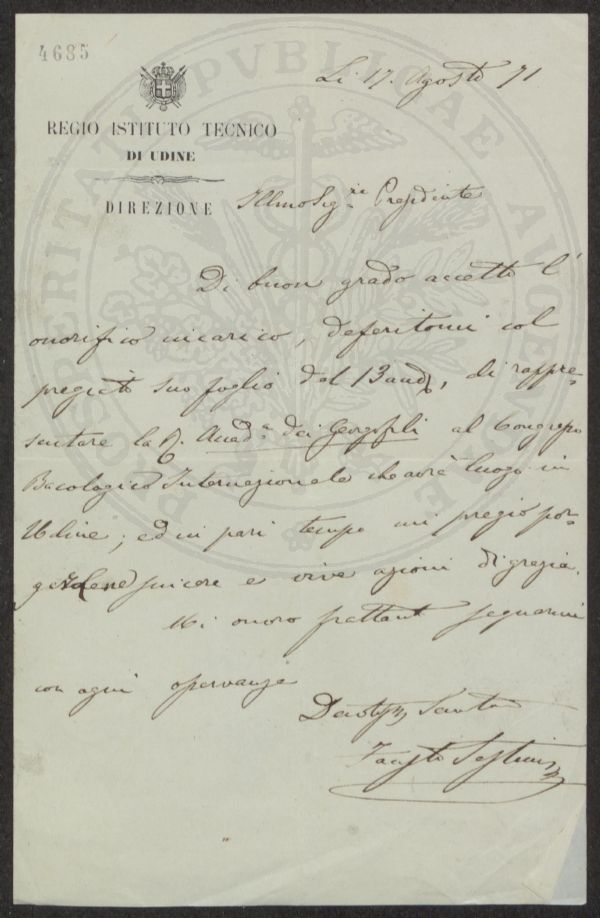 4685
Li 17. Agosto 71
REGIO ISTITUTO TECNICO
DI UDINE
DIREZIONE
Illmo Sig.re Presidente
Di buon grado accetto l'
onorifico incarico, deferitomi col
pregiato suo foglio del 13 and.e, di rappre=
sentare la R. Accad.a dei Georgofili al Congresso
Bacologico Internazionale che avrà luogo in
Udine; ed in pari tempo mi pregio por=
gerlene sincere e vive azioni di grazia.
Mi onoro frattanto segnarmi
con ogni osservanza
Fausto Sestini
PROSPERITATI PVBLICAE AVGENDAE